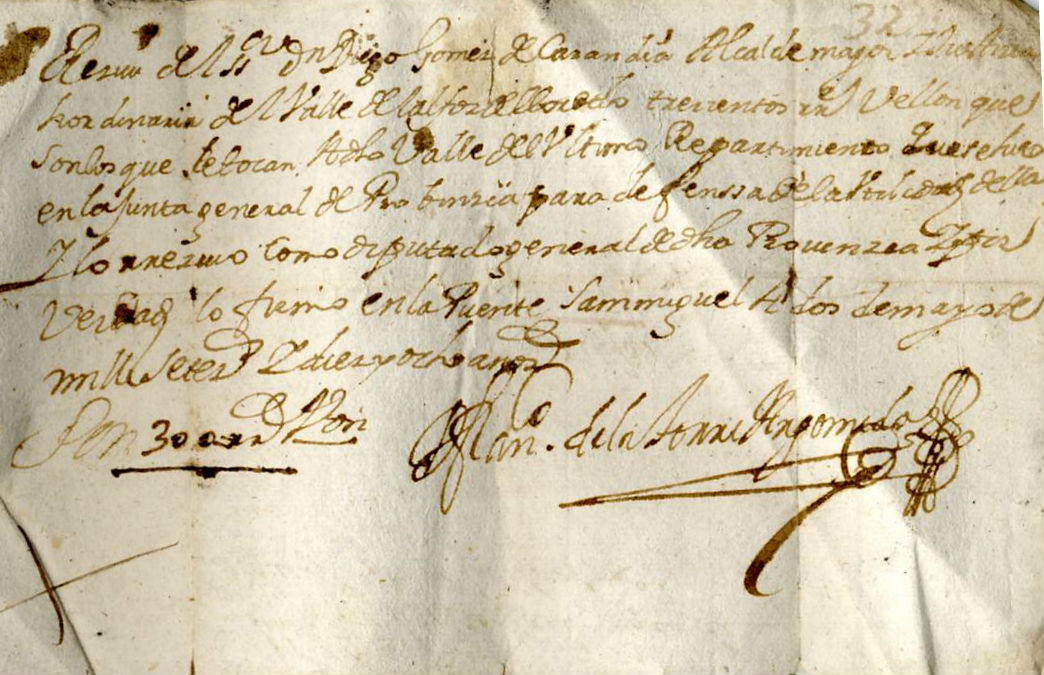 32
Rezui del Sr Dn Diego Gomez de Carandia Alcalde mayor Y Justizia
hordinaria del Valle de lalfoz de lloredo trezientos rs Vellon que
son los que le tocan Adho Valle del Vltimo Repartimiento Que se hizo
en la Junta general de Probinzia para defenssa de la della
Y lo rrezivo Como diputado general de dha Provenzia Y por
Verdad lo firmo en la Puente Sammiguel A dos de mayo de
mill Setezs Y diez y ocho años
Son 300 rs Von
Juan de la Torre Argomedo